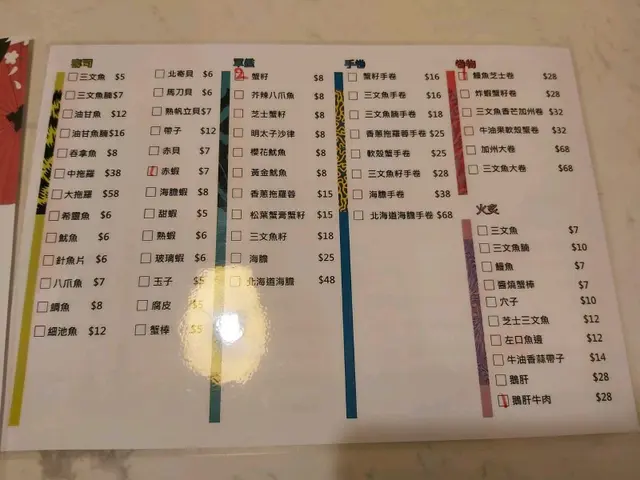 壽司
三文魚 $5
三文魚腩 $7
油甘魚 $12
油甘魚腩 $16
吞拿魚 $8
中拖羅 $38
大拖羅 $58
希靈魚 $6
魷魚 $6
針魚片 $6
八爪魚 $7
鯛魚 $8
細池魚 $12
北寄貝 $6
馬刀貝 $6
熟帆立貝 $7
帶子 $12
赤貝 $7
1 赤蝦 $7
海膽蝦 $8
甜蝦 $5
熟蝦 $6
玻璃蝦 $6
玉子 $5
腐皮 $5
蟹棒 $5
軍艦
2 蟹籽 $8
芥辣八爪魚 $8
芝士蟹籽 $8
明太子沙律 $8
櫻花魷魚 $8
黃金魷魚 $8
香蔥拖羅蓉 $15
松葉蟹膏蟹籽 $15
三文魚籽 $18
海膽 $25
北海道海膽 $48
手卷
蟹籽手卷 $16
三文魚手卷 $16
三文魚腩手卷 $18
香蔥拖羅蓉手卷 $25
軟殼蟹手卷 $25
三文魚籽手卷 $28
海膽手卷 $38
北海道海膽手卷 $68
卷物
1 鰻魚芝士卷 $28
炸蝦蟹籽卷 $28
三文魚香芒加州卷 $32
牛油果軟殼蟹卷 $32
加州大卷 $68
三文魚大卷 $68
火炙
三文魚 $7
三文魚腩 $10
鰻魚 $7
醬燒蟹棒 $7
穴子 $10
芝士三文魚 $12
左口魚邊 $12
牛油香蒜帶子 $14
鵝肝 $28
1 鵝肝牛肉 $28